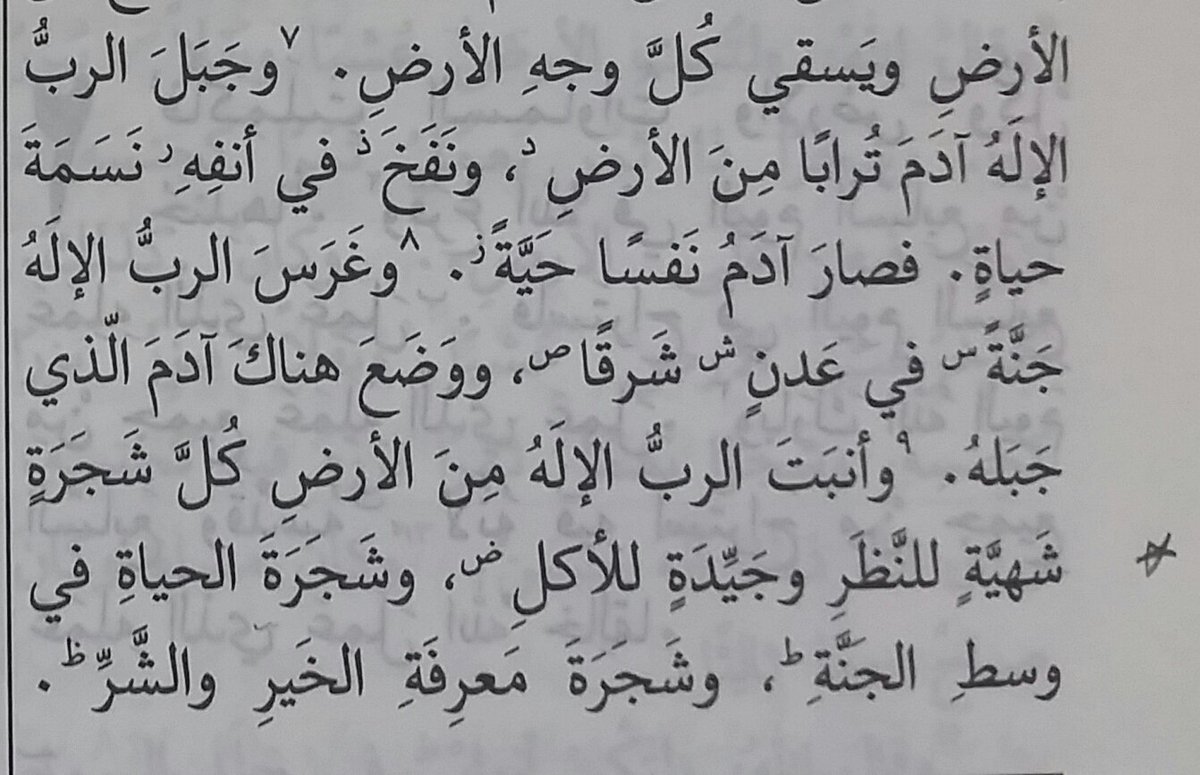 الأرضِ ويَسقي كُلَّ وجهِ الأرضِ. ٧وجَبَلَ الربُّ
الإلَهُ آدَمَ تُرابًا مِنَ الأرضِ د، ونَفَخَ ذ في أنفِهِ ر نَسَمَةَ
حياةٍ. فصارَ آدَمُ نَفسًا حَيَّةً ز. ٨وغَرَسَ الربُّ الإلَهُ
جَنَّةً س في عَدنٍ ش شَرقًا ص، ووَضَعَ هناكَ آدَمَ الّذي
جَبَلهُ. ٩وأنبَتَ الربُّ الإلَهُ مِنَ الأرضِ كُلَّ شَجَرَةٍ
شَهيَّةٍ للنَّظَرِ وجَيِّدَةٍ للأكلِ ض، وشَجَرَةَ الحياةِ في
وسطِ الجَنَّةِ ط، وشَجَرَةَ مَعرِفَةِ الخَيرِ والشَّرِّ ظ.